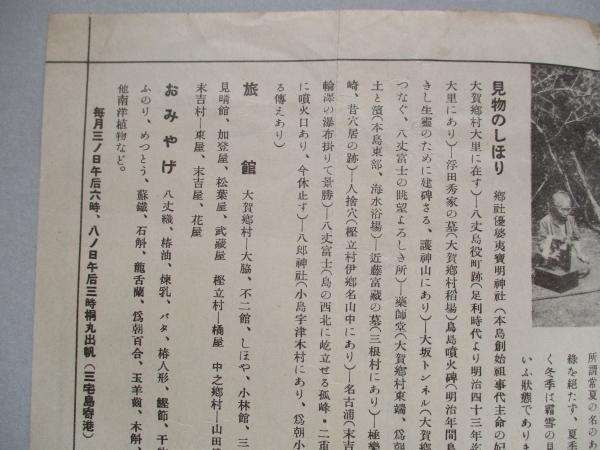 見物のしほり　鄕社優婆夷寶明神社（本島創始祖事代主命の妃
大賀鄕村大里に在す）―八丈島役町跡（足利時代より明治四十三年迄
大里にあり）―浮田秀家の墓（大賀鄕村稻場）鳥島噴火碑（明治年間鳥
きし生靈のために建碑さる、護神山にあり）―大坂トンネル（大賀鄕
つなぐ、八丈富士の眺望よろしき所）―藥師堂（大賀鄕村東端、爲朝
土と濱（本島東部、海水浴場）―近藤富藏の墓（三根村にあり）―極樂
崎、昔穴居の跡）―人捨穴（樫立村伊鄕名山中にあり）―名古浦（末吉
輪澤の瀑布掛りて景勝）―八丈富士（島の西北に屹立せる孤峰・二重
に噴火口あり、今休止す）―八郎神社（小島宇津木村にあり、爲朝小
る傳えあり）
旅館　大賀鄕村―大脇、不二館、しほや、小林館、三
見晴館、加登屋、松葉屋、武藏屋　樫立村―橘屋　中之鄕村―山田
末吉村―東屋、末吉屋、花屋
おみやげ　八丈織、椿油、煉乳、バタ、椿人形、鰹節、干物
ふのり、めつとう、蘇鐵、石斛、龍舌蘭、爲朝百合、玉羊齒、木斛、
他南洋植物など。
每月三ノ日午后六時、八ノ日午后三時桐丸出帆（三宅島寄港）
所謂常夏の名のあ
綠を絕たず、夏季
く冬季は霜雪の見
いふ狀態でありま